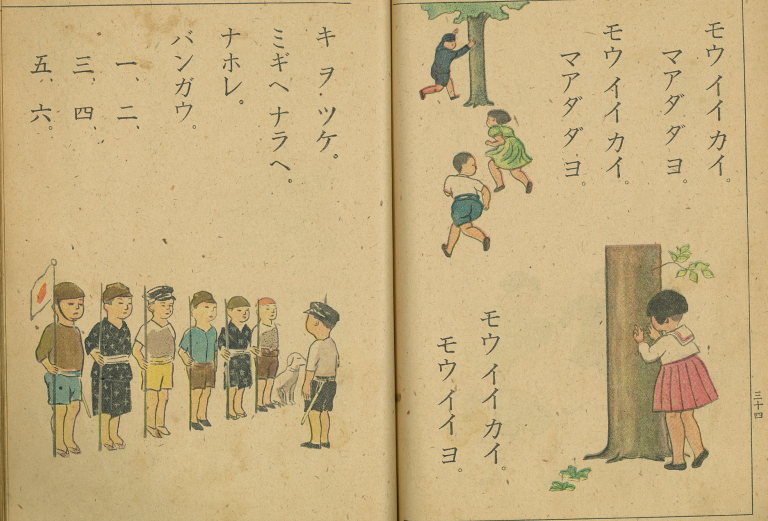 モウ イイ カイ。
マアダ ダ ヨ。
モウ イイ カイ。
マアダ ダ ヨ。
モウ イイ カイ。
モウ イイ ヨ。
三十四
キ ヲ ツケ。
ミギヘ ナラヘ。
ナホレ。
バンガウ。
一、二、
三、四、
五、六。